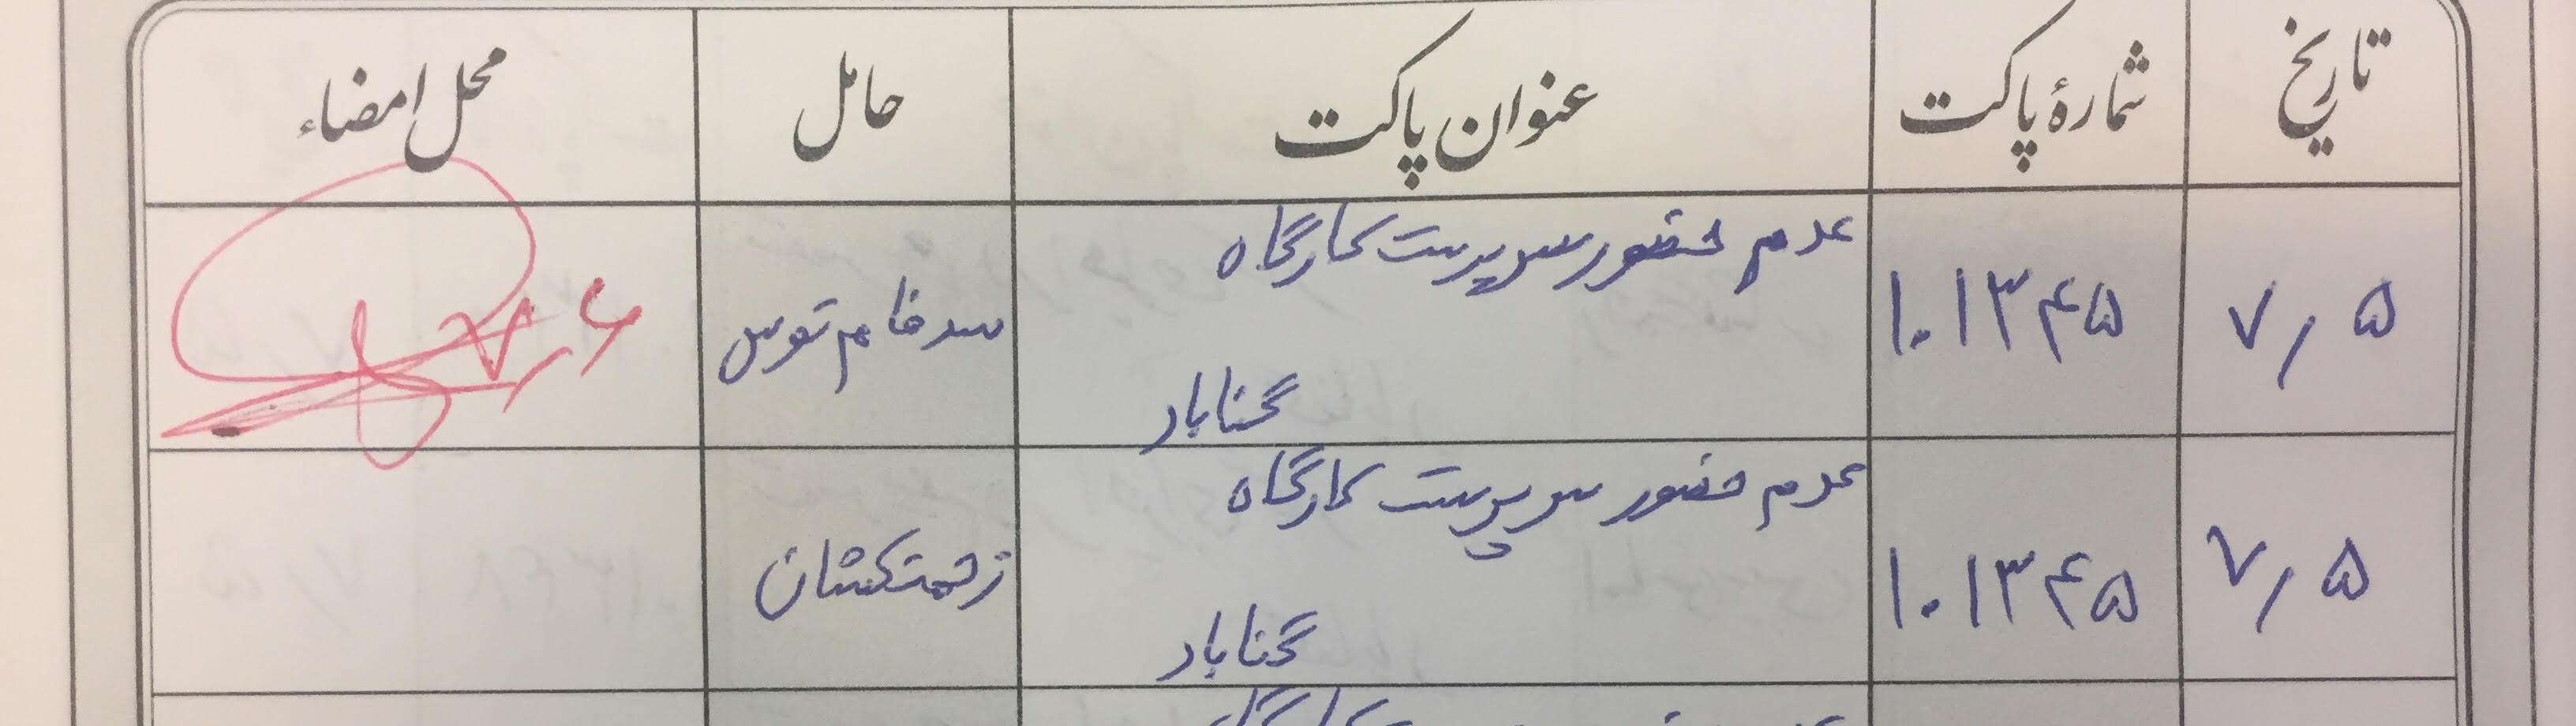 تاریخ شمارهٔ پاکت عنوان پاکت حامل محل امضاء
۷/۵ ۱۰۱۳۴۵ عدم حضور سرپرست کارگاه سدفام توس ۷/۶
گناباد
۷/۵ ۱۰۱۳۴۵ عدم حضور سرپرست کارگاه زحمتکشان
گناباد